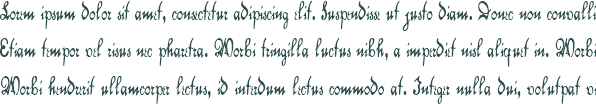 Lorem ipsum dolor sit amet, consectetur adipiscing elit. Suspendisse ut justo diam. Donec non convalli
Etiam tempor vel risus nec pharetra. Morbi fringilla luctus nibh, a imperdiet nisl aliquet in. Morbi
Morbi hendrerit ullamcorper lectus, id interdum lectus commodo at. Integer nulla dui, volutpat vi